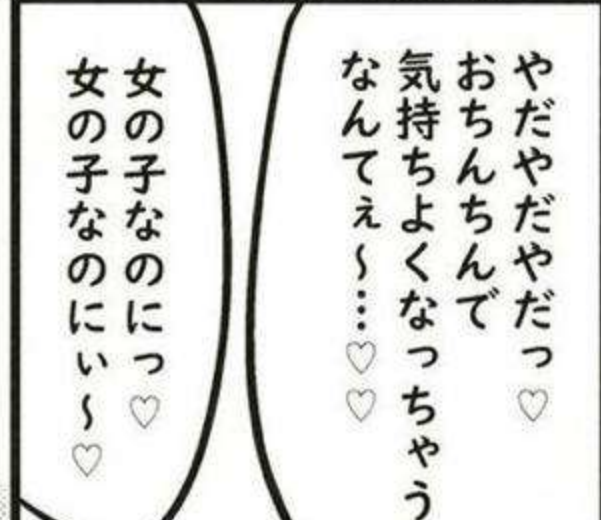 やだやだやだっ♡
おちんちんで
気持ちよくなっちゃう
なんてぇ～…♡♡
女の子なのにっ♡
女の子なのにぃ～♡